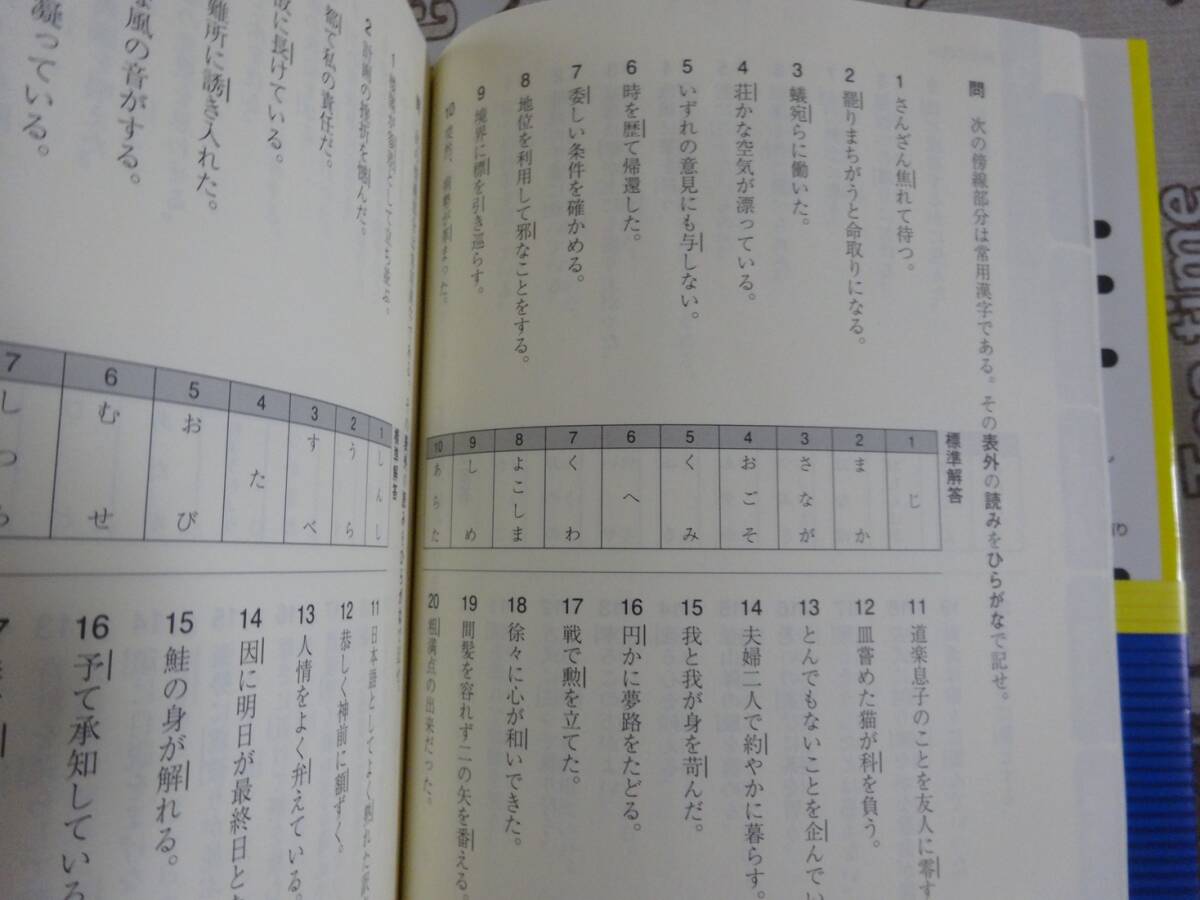 問 次の傍線部分は常用漢字である。その表外の読みをひらがなで記せ。
1 さんざん焦れて待つ。
2 罷りまちがうと命取りになる。
3 蟻宛らに働いた。
4 荘かな空気が漂っている。
5 いずれの意見にも与しない。
6 時を歴て帰還した。
7 委しい条件を確かめる。
8 地位を利用して邪なことをする。
9 境界に標を引き巡らす。
10
標準解答
1 じ
2 まか
3 さなが
4 おごそ
5 くみ
6 へ
7 くわ
8 よこしま
9 しめ
10 あらた
11 道楽息子のことを友人に零す
12 皿嘗めた猫が科を負う。
13 とんでもないことを企んでい
14 夫婦二人で約やかに暮らす。
15 我と我が身を苛んだ。
16 円かに夢路をたどる。
17 戦で勲を立てた。
18 徐々に心が和いできた。
19 間髪を容れず二の矢を番える。
20 粗満点の出来だった。
2 計画の挫折を
都て私の責任だ。
に長けている。
難所に誘き入れた。
な風の音がする。
凝っている。
標準解答
1 しんし
2 うら
3 すべ
4 た
5 おび
6 むせ
7 しつら
11 日本語としてよく
12 恭しく神前に額ずく。
13 人情をよく弁えている。
14 因に明日が最終日と
15 鮭の身が解れる。
16 予て承知している